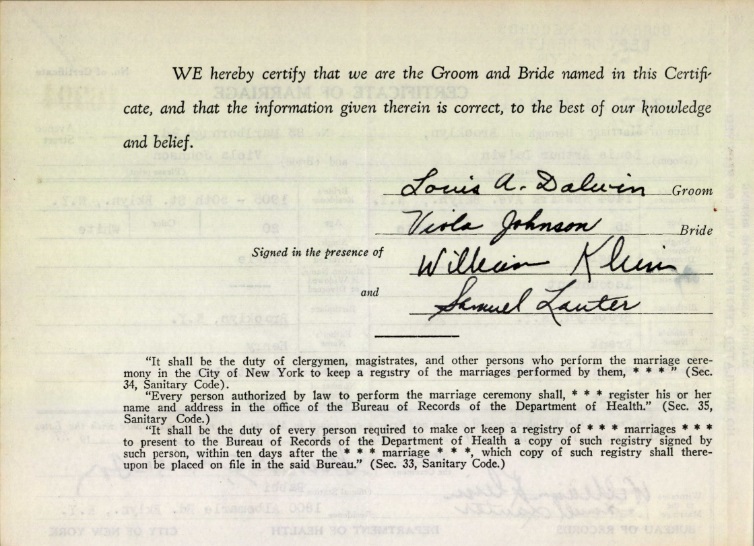 WE hereby certify that we are the Groom and Bride named in this Certifi-
cate, and that the information given therein is correct, to the best of our knowledge
and belief.
Louis A. Dalwin Groom
Viola Johnson Bride
Signed in the presence of William Klein
and Samuel Lauter
"It shall be the duty of clergymen, magistrates, and other persons who perform the marriage cere-
mony in the City of New York to keep a registry of the marriages performed by them, * * * " (Sec.
34, Sanitary Code).
"Every person authorized by law to perform the marriage ceremony shall, * * * register his or her
name and address in the office of the Bureau of Records of the Department of Health." (Sec. 35,
Sanitary Code.)
"It shall be the duty of every person required to make or keep a registry of * * * marriages * * *
to present to the Bureau of Records of the Department of Health a copy of such registry signed by
such person, within ten days after the * * * marriage * * *, which copy of such registry shall there-
upon be placed on file in the said Bureau." (Sec. 33, Sanitary Code.)